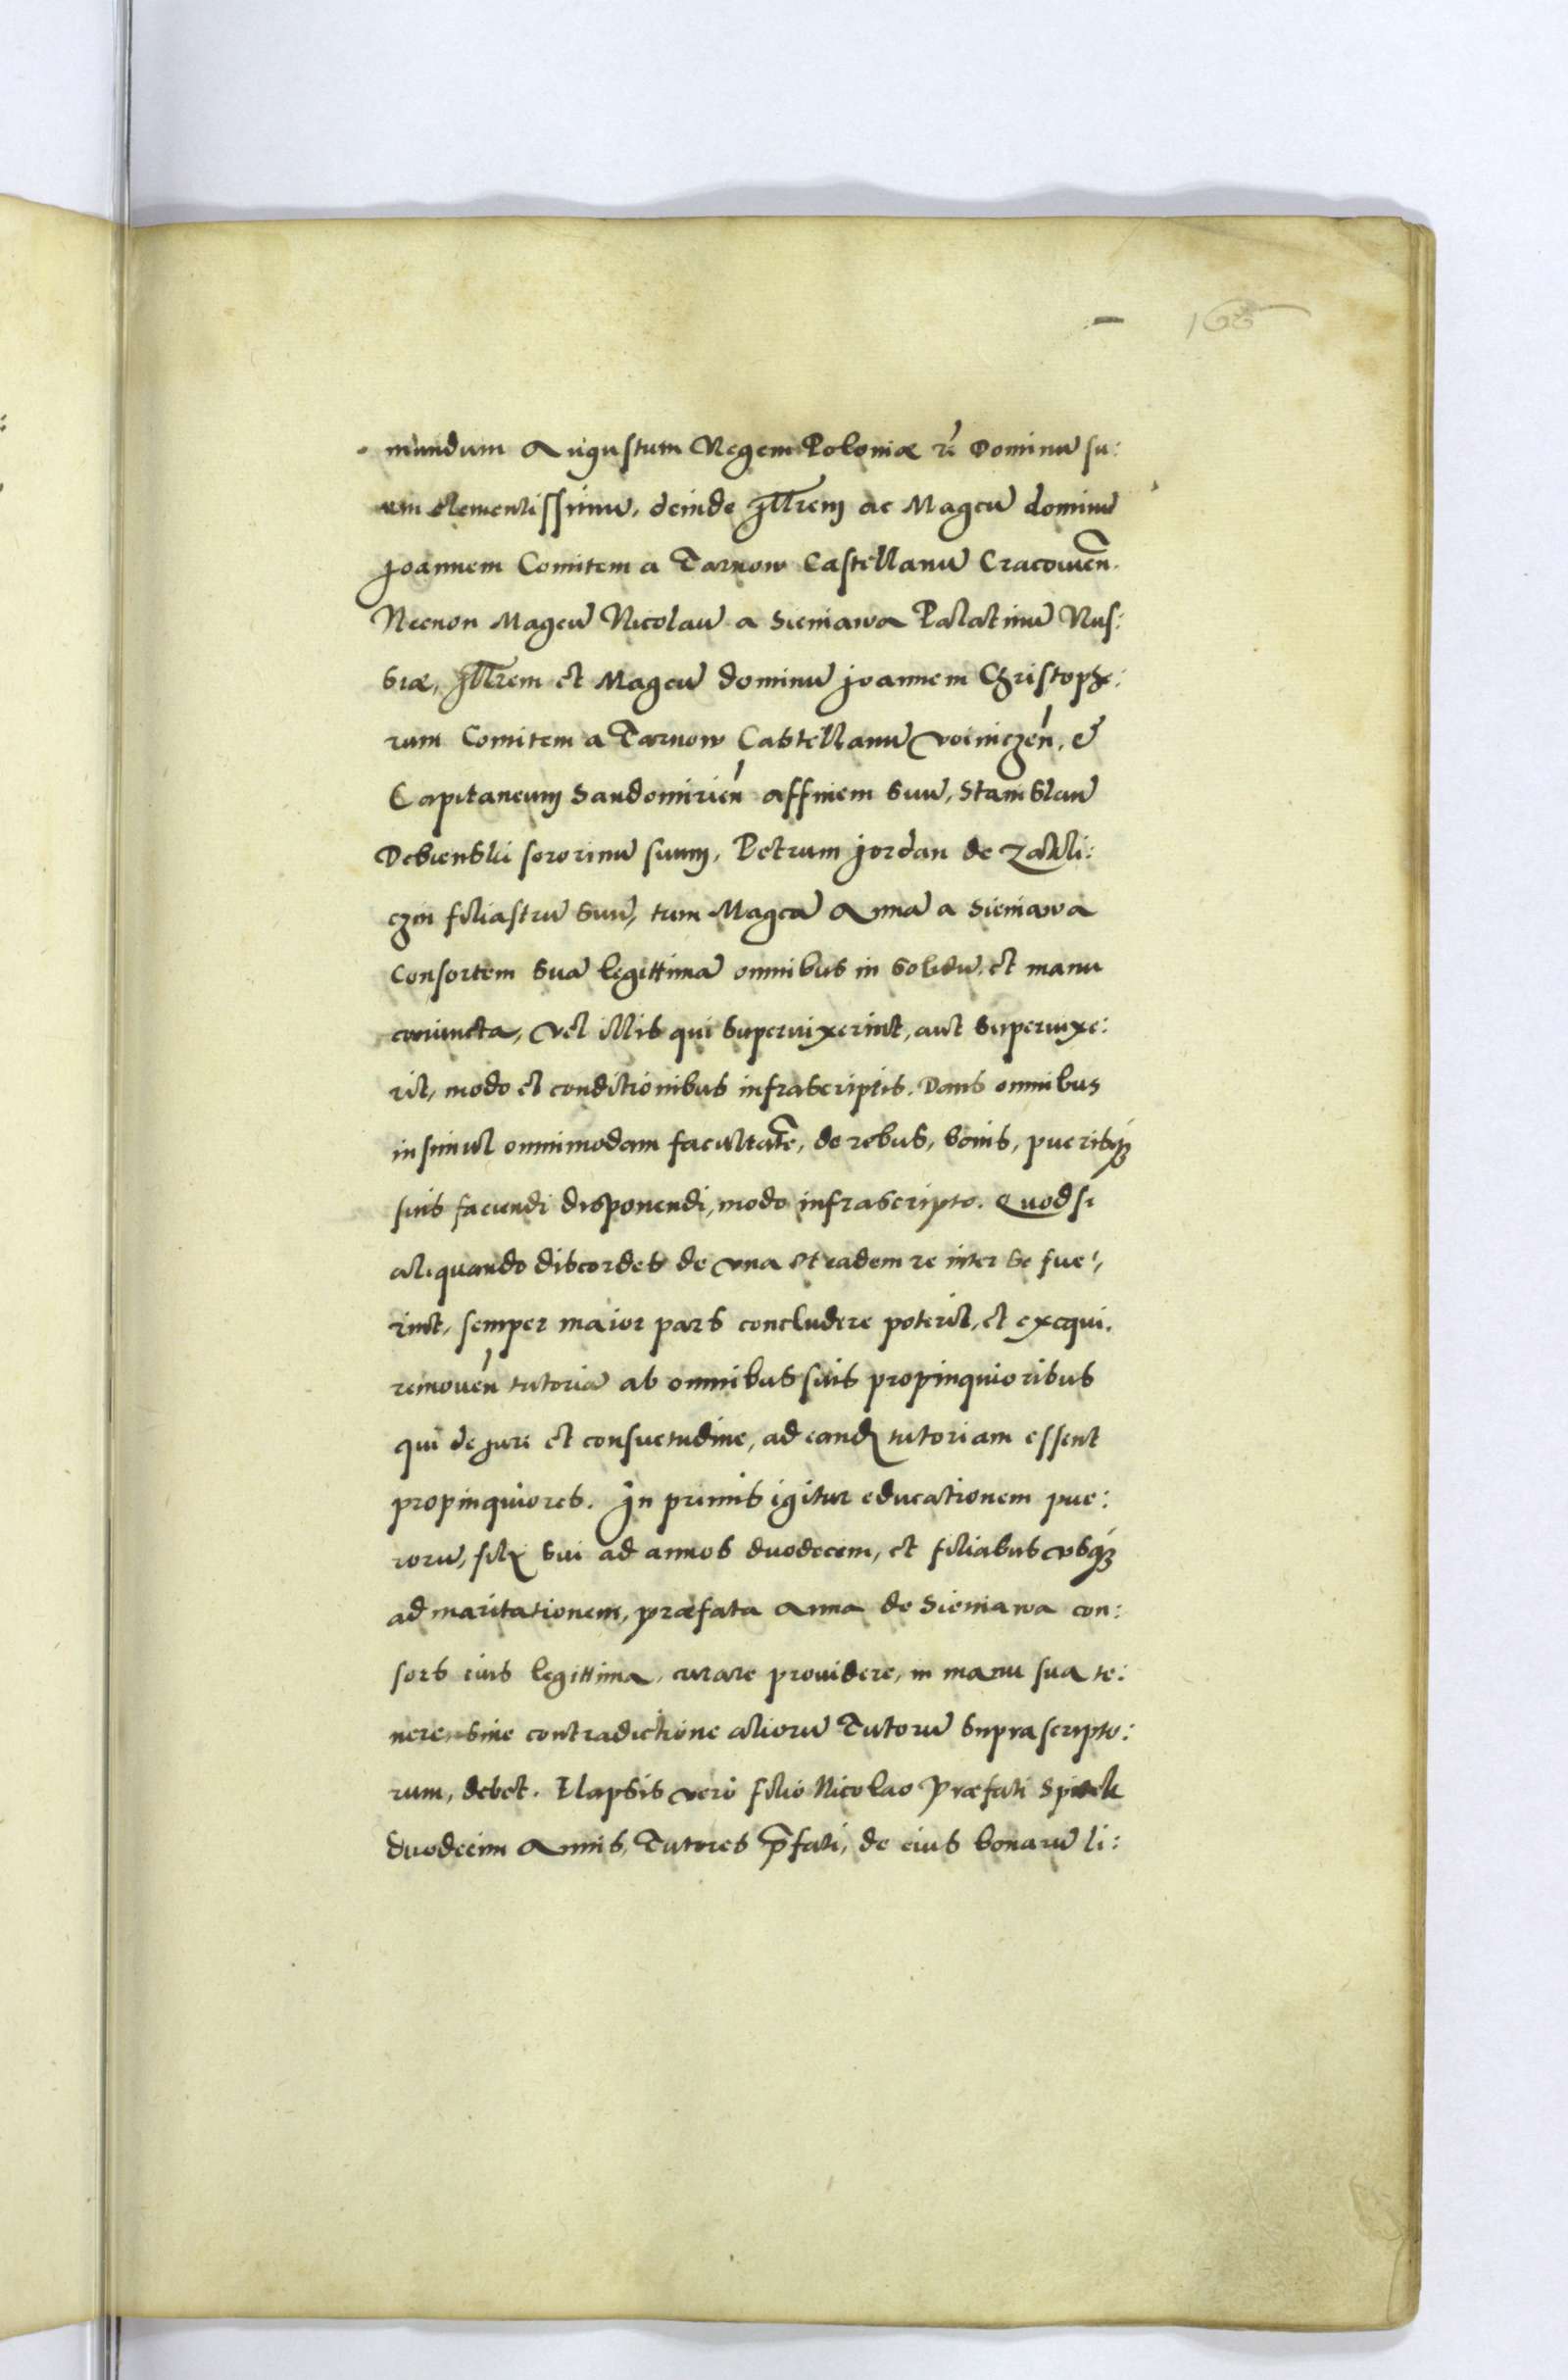 168
mundum Augustum Regem Poloniæ rc̄ Dominū su:
um clementissimū, deinde Illrem ac Magcū dominū
Joannem Comitem a Tarnow Castellanū Cracouien̄.
Necnon Magcū Nicolaū a Sieniawa Palatinū Rus:
siæ, Illrem et Magcū dominū Joannem Christoph:
rum Comitem a Tarnow Castellanū Voiniczen̄, &
Capitaneum Sandomirien̄ affinem suū, Stanislaū
Debienski sororinū suum, Petrum Jordan de Zakli:
czin filiastrū suū, tum Magcā Annā a Sieniawa
Consortem suā legittimā omnibus in solidū et manu
coniuncta, vel illis qui superuixerint, aut superuixe:
rit, modo et conditionibus infrascriptis. Dans omnibus
insimul omnimodam facultatē, de rebus, bonis, puerisq3
suis faciendi disponendi, modo infrascripto. Quod si
aliquando discordes de vna et eadem re inter se fue:
rint, semper maior pars concludere poterit, et exequi.
remouen̄ tutoriā ab omnibus suis propinquioribus
qui de jure et consuetudine, ad eand̄ tutoriam essent
propinquiores. In primis igitur educationem pue:
rorū, filȳ sui ad annos duodecem, et filiabus vsq3
ad maritationem, præfata Anna de Sieniawa con:
sors eius legittima, curare prouidere, in manu sua te:
nere sine contradictione aliorū Tutorū suprascripto:
rum, debet. Elapsis vero filio Nicolao præfati Spitek
duodecim Annis, Tutores p̄fati, de eius bonarū li: